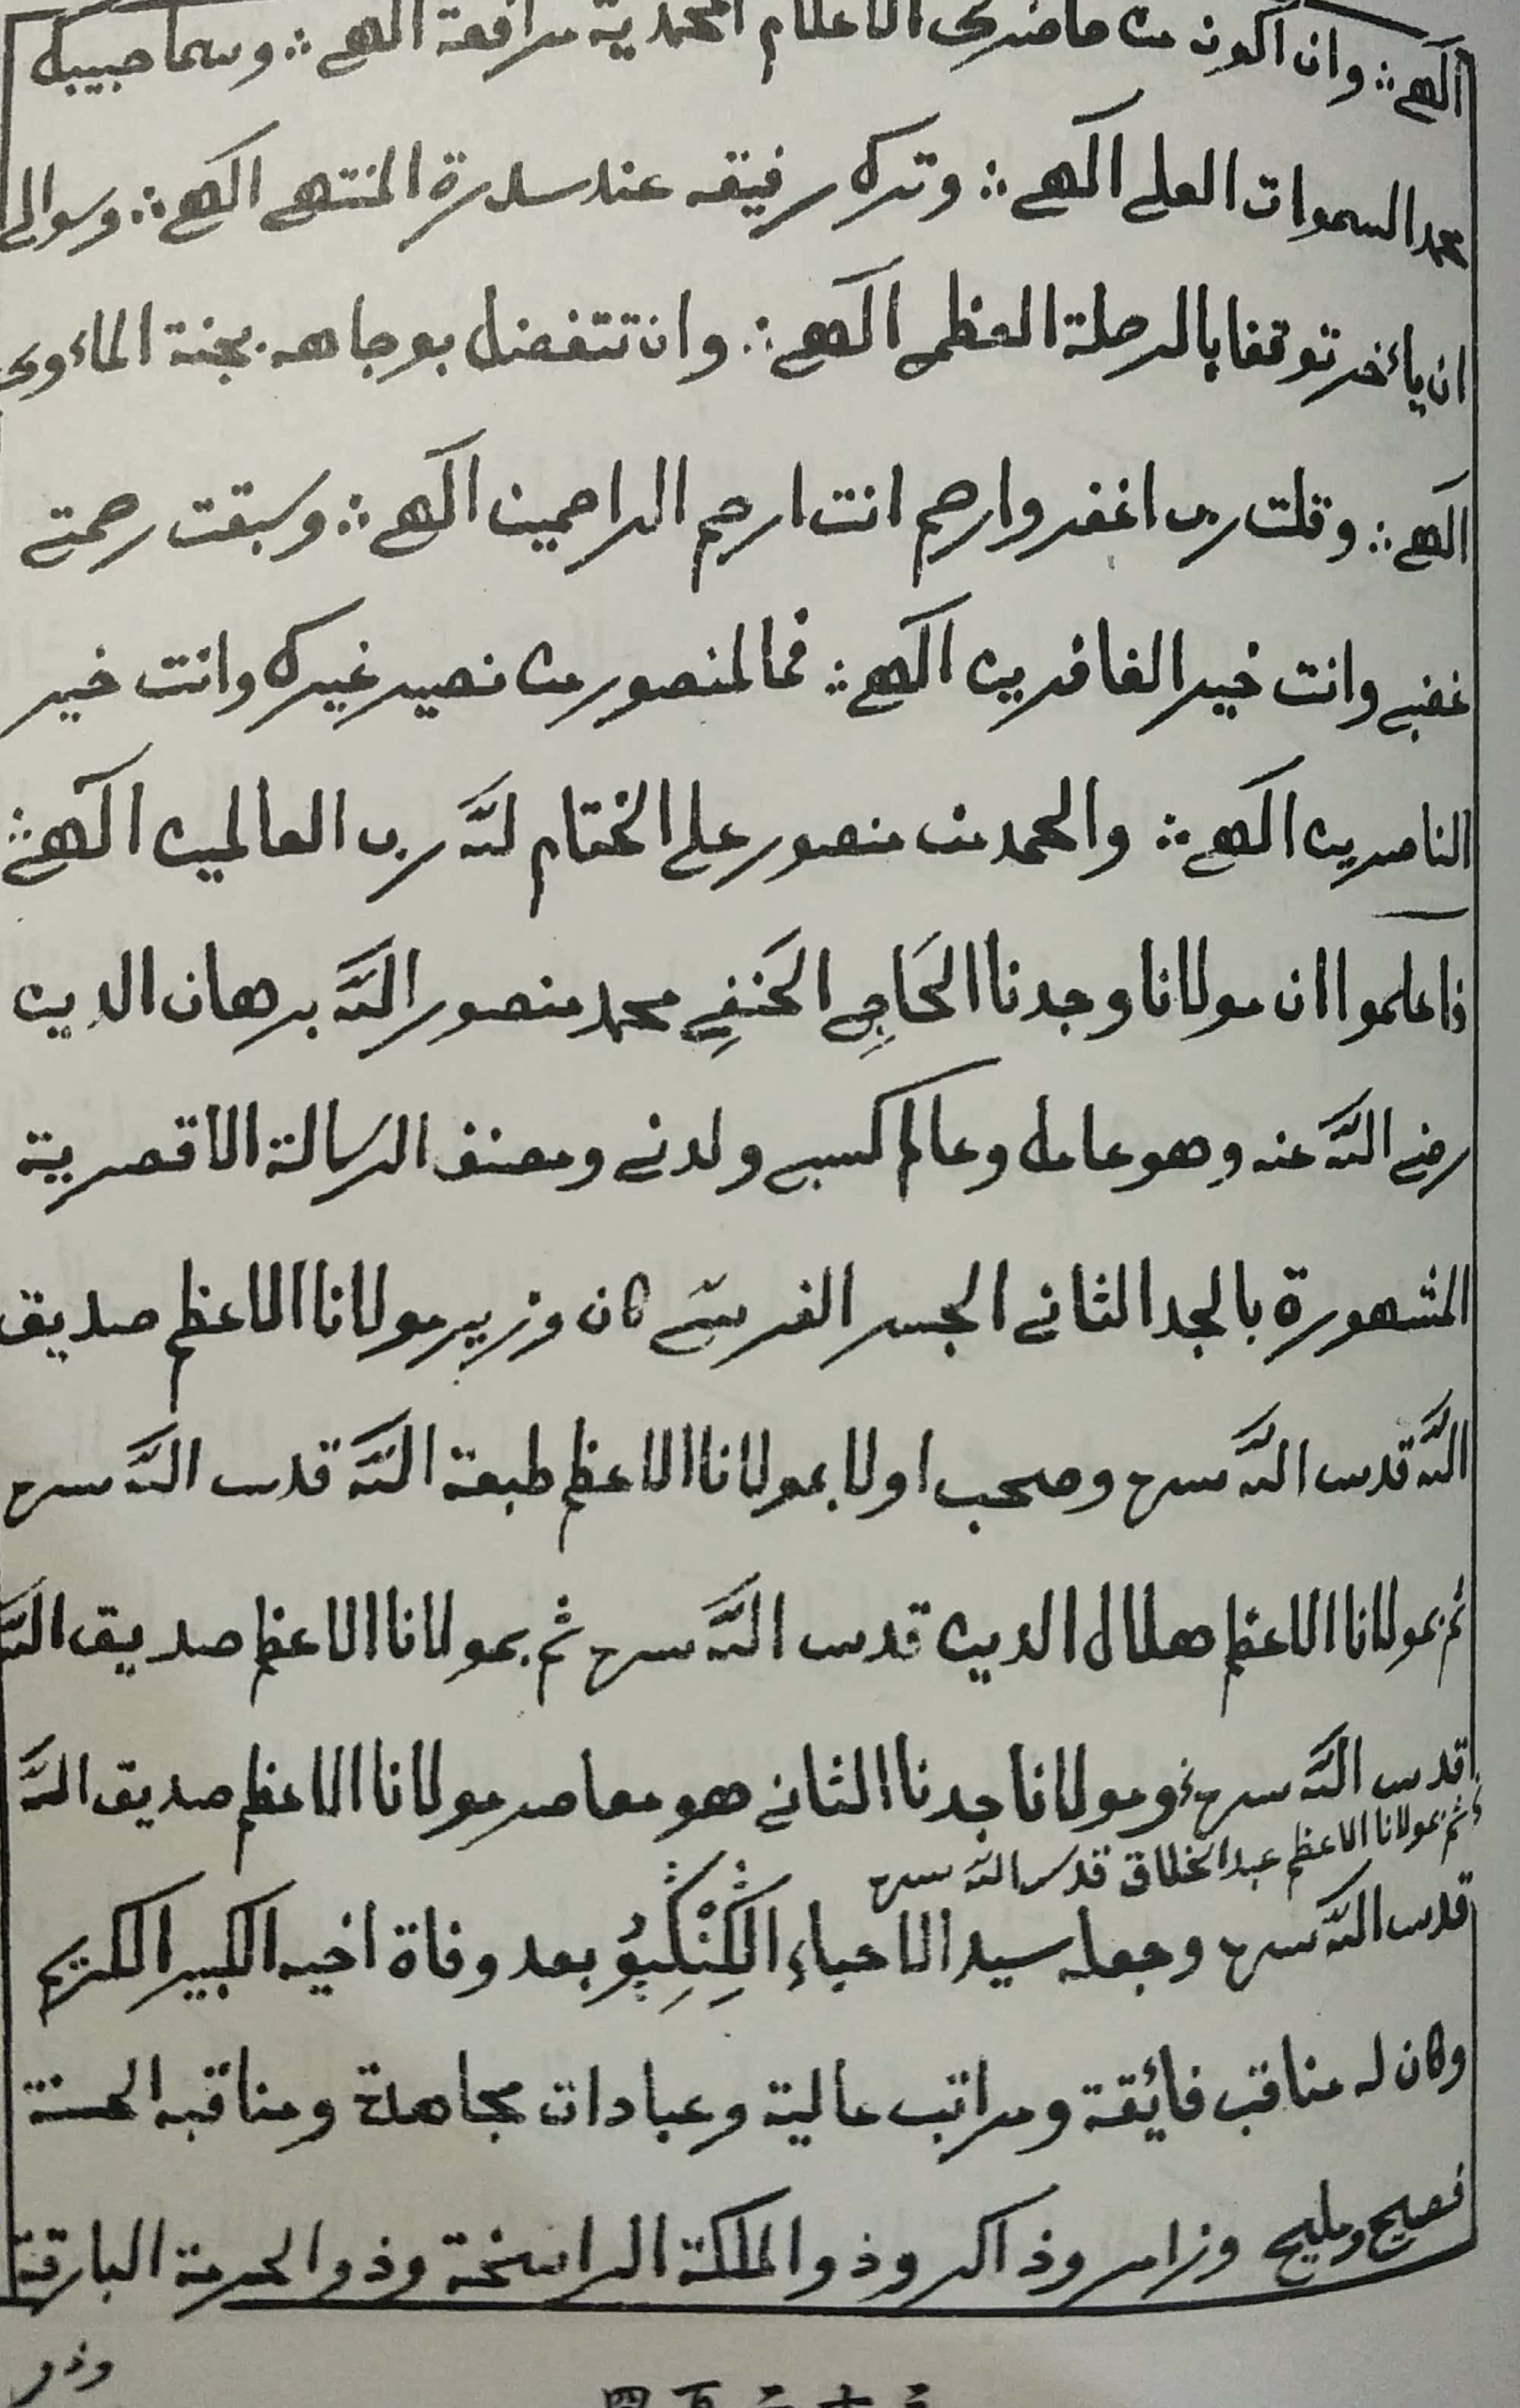 الهي ؞ وان اكون من حاضري الاعلام المحمدية مرافعة الهي ؞ وسما حبيبك
محمد السموات العلي الهي ؞ وترك رفيقه عند سدرة المنتهي الهي ؞ وسوالي
ان يأخر توقفا بالرحلة العظمي الهي ؞ وان تتفضل بوجاهه بجنة المأوي
الهي ؞ وقلت رب اغفر وارحم انت ارحم الراحمين الهي ؞ وسبقت رحمتي
غضبي وانت خير الغافرين الهي ؞ فما لمنصور من نصير غيرك وانت خير
الناصرين الهي ؞ والحمد من منصور علي الختام لله رب العالمين الهي ؞
فاعلموا ان مولانا وجدنا الحَاجِي الحَنَفِي محمد منصور الله برهان الدين
رضي الله عنه وهو عامل وعالم كسبي ولدني ومصنف الرسالة الاقصرية
المشهورة بالجد الثاني الجسر الغربي كان وزير مولانا الاعظم صديق
الله قدس الله سره وصحب اولا بمولانا الاعظم طبعة الله قدس الله سره
ثم بمولانا الاعظم هلال الدين قدس الله سره ثم بمولانا الاعظم صديق الله
قدس الله سره ومولانا جدنا الثاني هو معاصر مولانا الاعظم صديق الله
ثم بمولانا الاعظم عبد الخلاق قدس الله سره
قدس الله سره وجعله سيد الاحباء بعد وفاة اخيه الكبير الكريم
وكان له مناقب فائقة ومراتب عالية وعبادات مجاهدة ومناقبه الحسنة
فصيح ومليح وزامر وذاكر وذو الملكة الراسخة وذو الحرمة البارقة
وذو